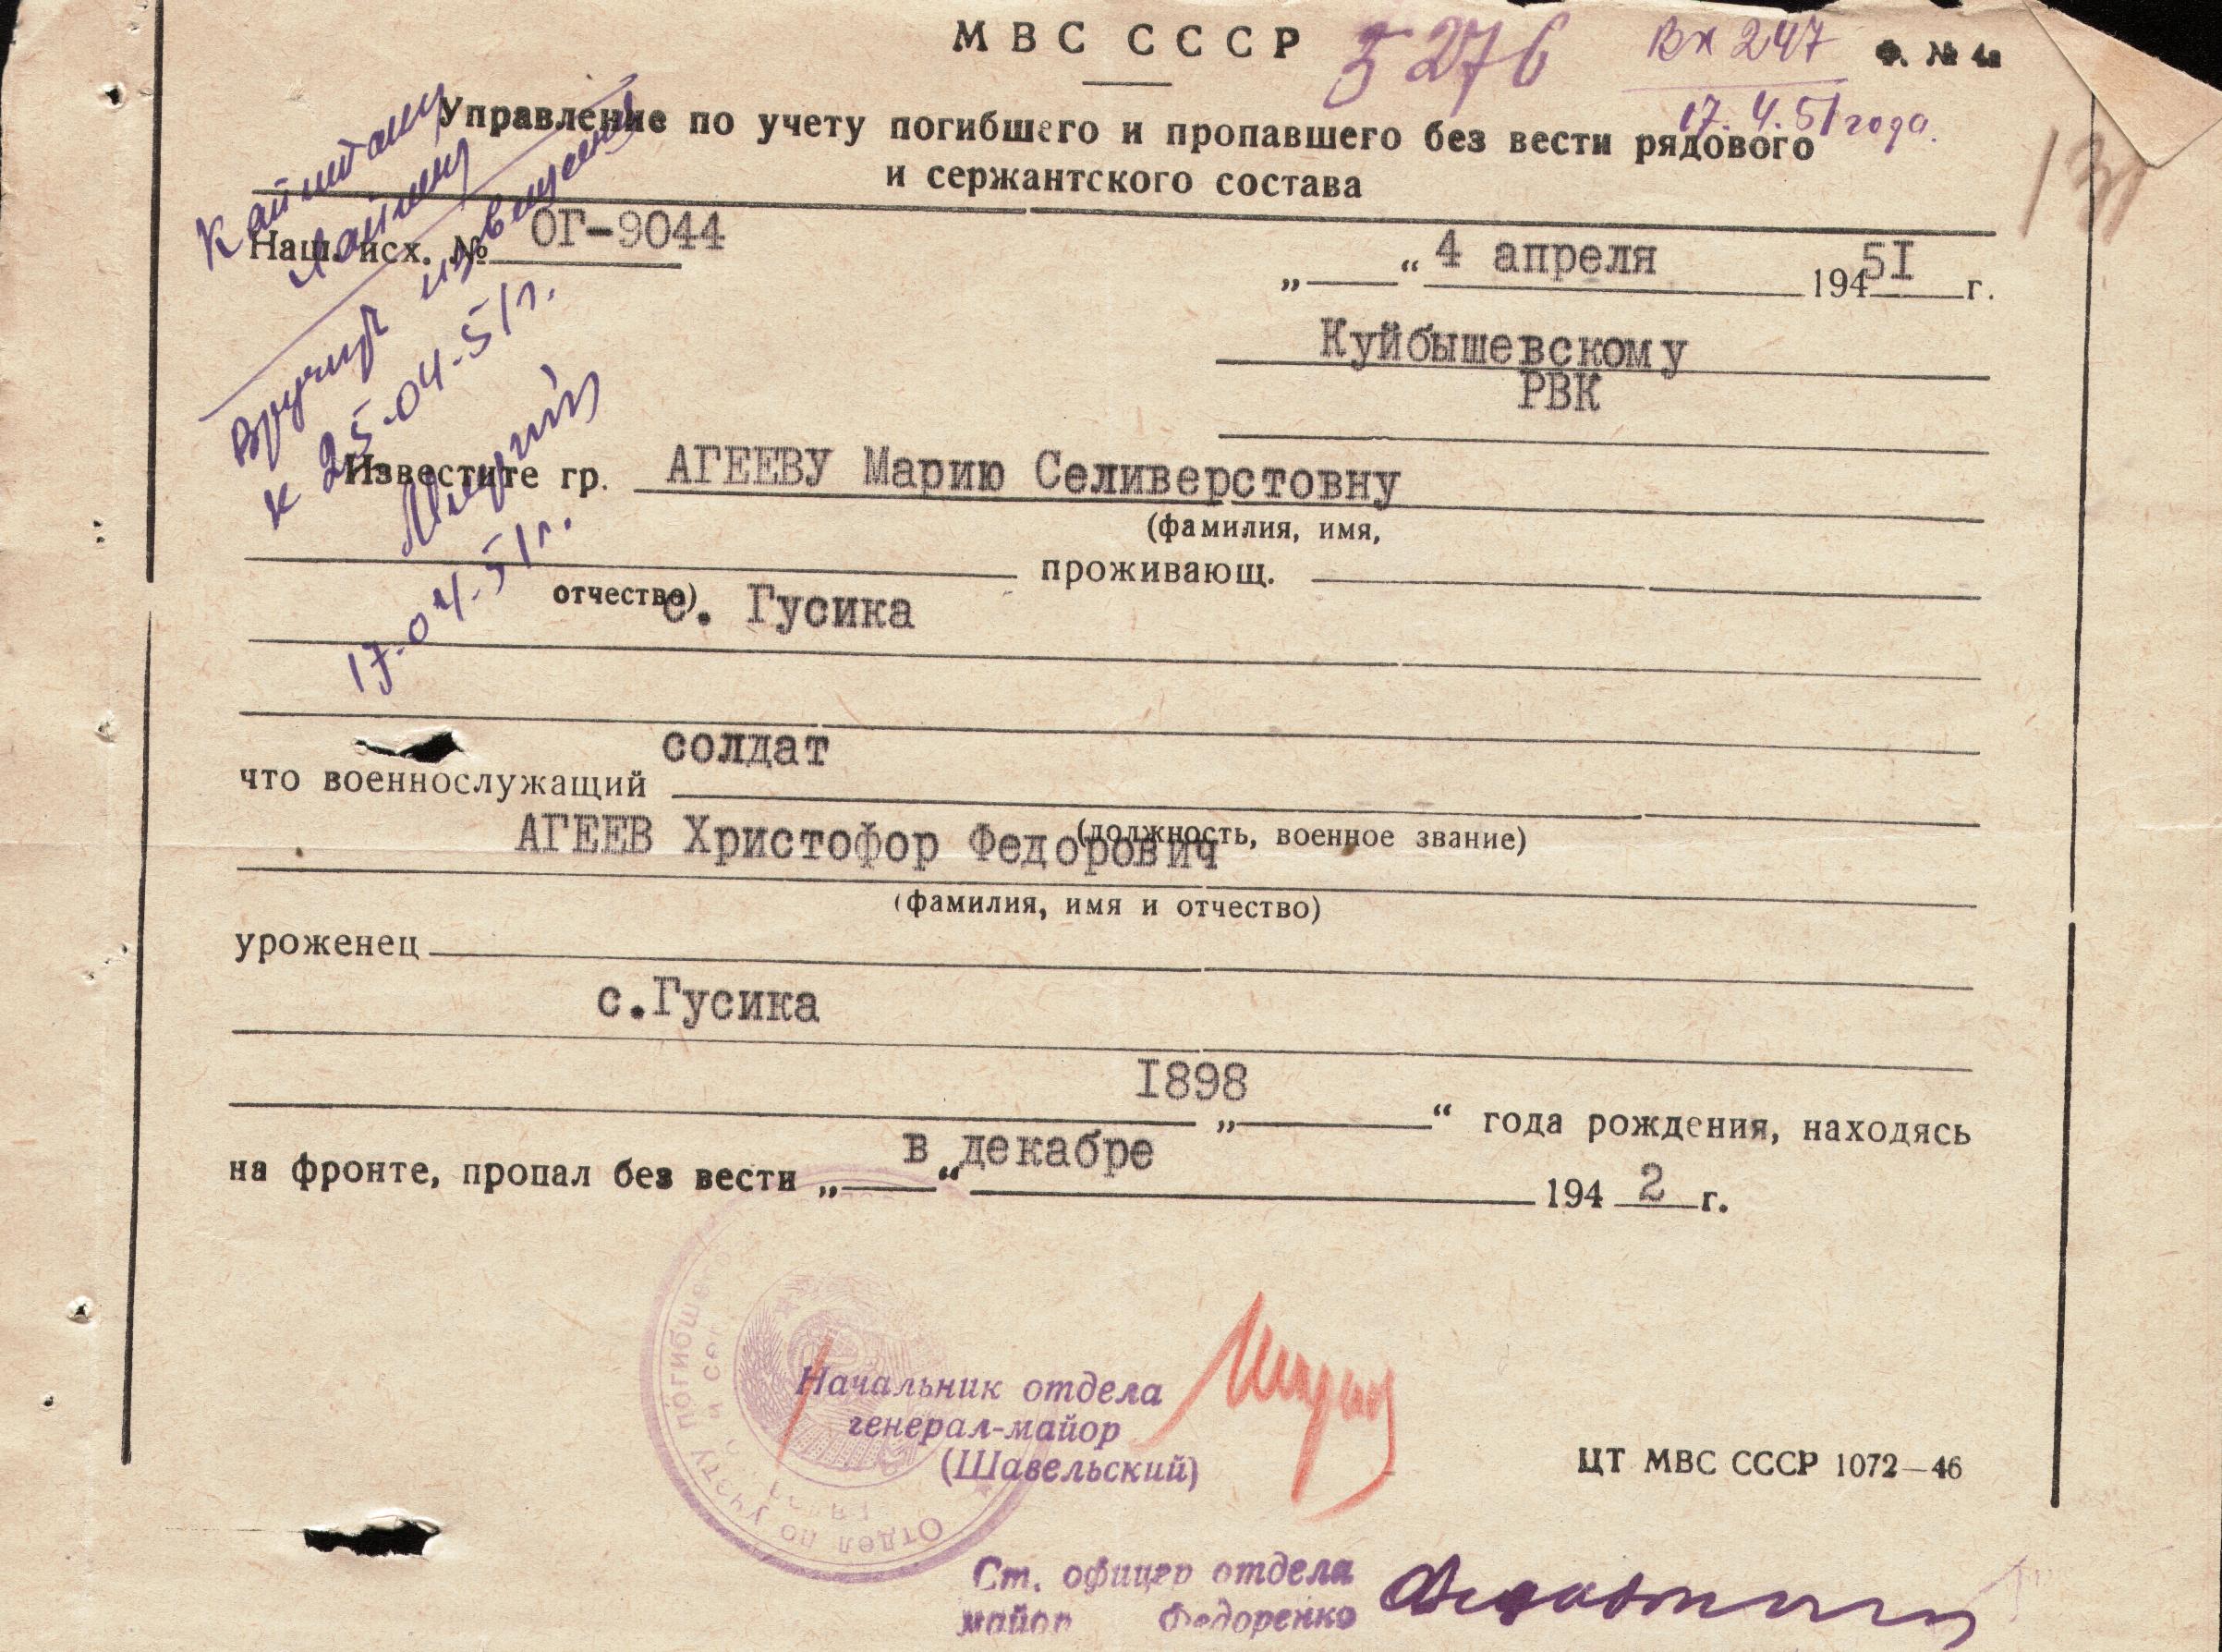 МВС СССР
5276
Вх 247
17.4.51 года.
Ф. № 4а
Управление по учету погибшего и пропавшего без вести рядового
и сержантского состава
Капитану
Вручить извещение
к 25-04-51 г.
17-04-51 г.
Наш. исх. № ОГ-9044
„ “ 4 апреля 1945I г.
Куйбышевскому
РВК
Известите гр. АГЕЕВУ Марию Селиверстовну
(фамилия, имя,
проживающ.
отчество)
с. Гусика
солдат
что военнослужащий
(должность, военное звание)
АГЕЕВ Христофор Федорович
(фамилия, имя и отчество)
уроженец
с.Гусика
I898
„ “ года рождения, находясь
на фронте, пропал без вести „ “ в декабре 194 2 г.
Начальник отдела
генерал-майор
(Шавельский)
Отдел по учету погибшего
ЦТ МВС СССР 1072—46
Ст. офицер отдела
майор Федоренко